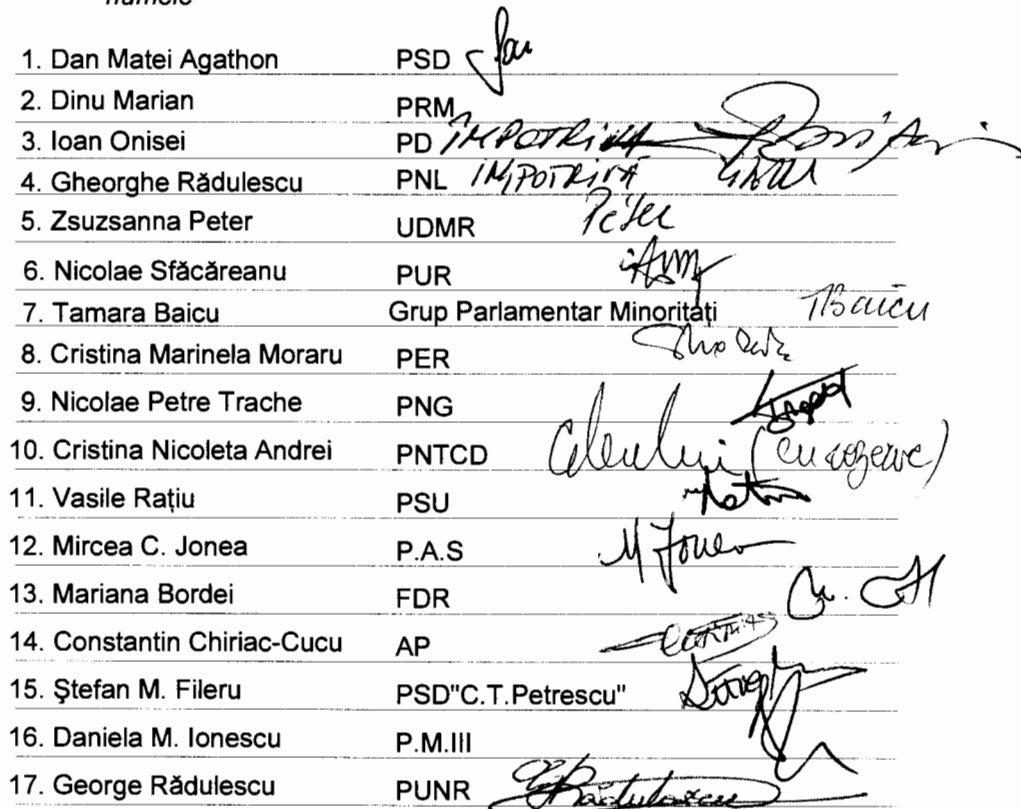 numele
1. Dan Matei Agathon PSD
2. Dinu Marian PRM
3. Ioan Onisei PD ÎMPOTRIVĂ
4. Gheorghe Rădulescu PNL IMPOTRIVĂ
5. Zsuzsanna Peter UDMR Péter
6. Nicolae Sfăcăreanu PUR
7. Tamara Baicu Grup Parlamentar Minoritați TBaicu
8. Cristina Marinela Moraru PER
9. Nicolae Petre Trache PNG
10. Cristina Nicoleta Andrei PNTCD (cu rezerve)
11. Vasile Rațiu PSU
12. Mircea C. Jonea P.A.S M Jonea
13. Mariana Bordei FDR
14. Constantin Chiriac-Cucu AP
15. Ştefan M. Fileru PSD"C.T.Petrescu"
16. Daniela M. Ionescu P.M.III
17. George Rădulescu PUNR GRădulescu